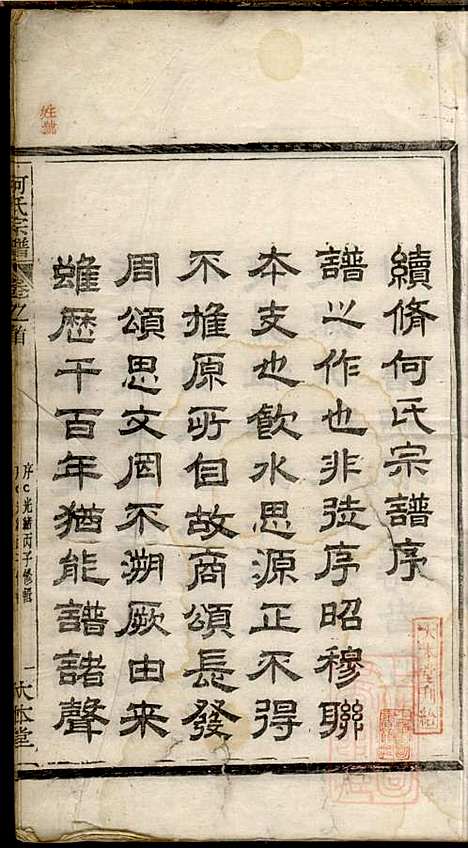 續脩何氏宗譜序
譜之作也非徒序昭穆聯
本支也飲水思源正不得
不推原所自故商頌長發
周頌思文罔不溯厥由來
雖歷千百年猶能譜諸聲
何氏宗譜
卷之首
序
光緒丙子修輯
一
大本堂